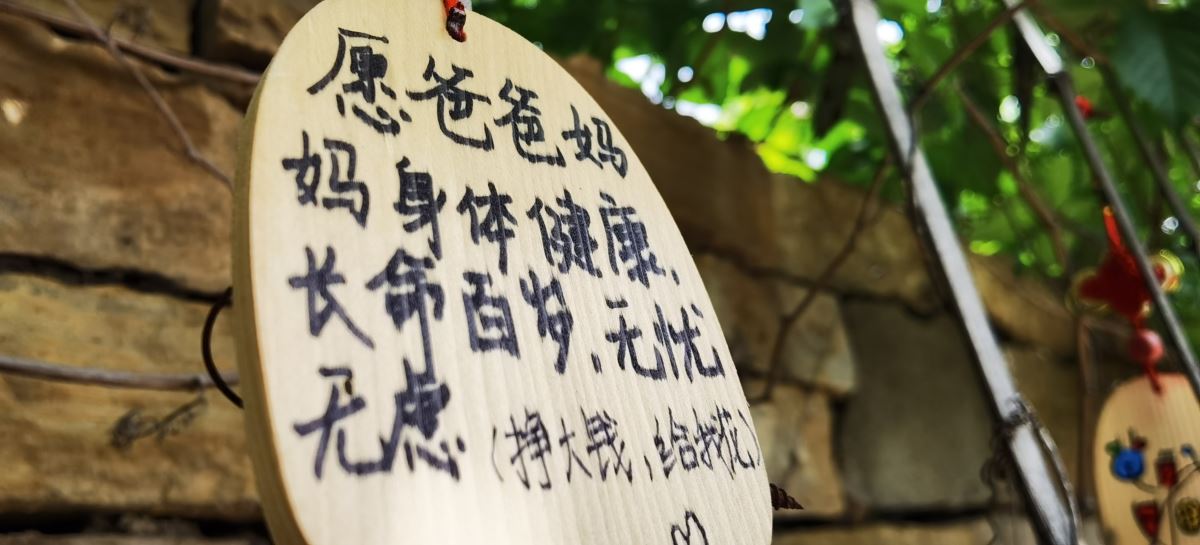 愿爸爸妈
妈身体健康，
长命百岁，无忧
无虑（挣大钱，给我花）